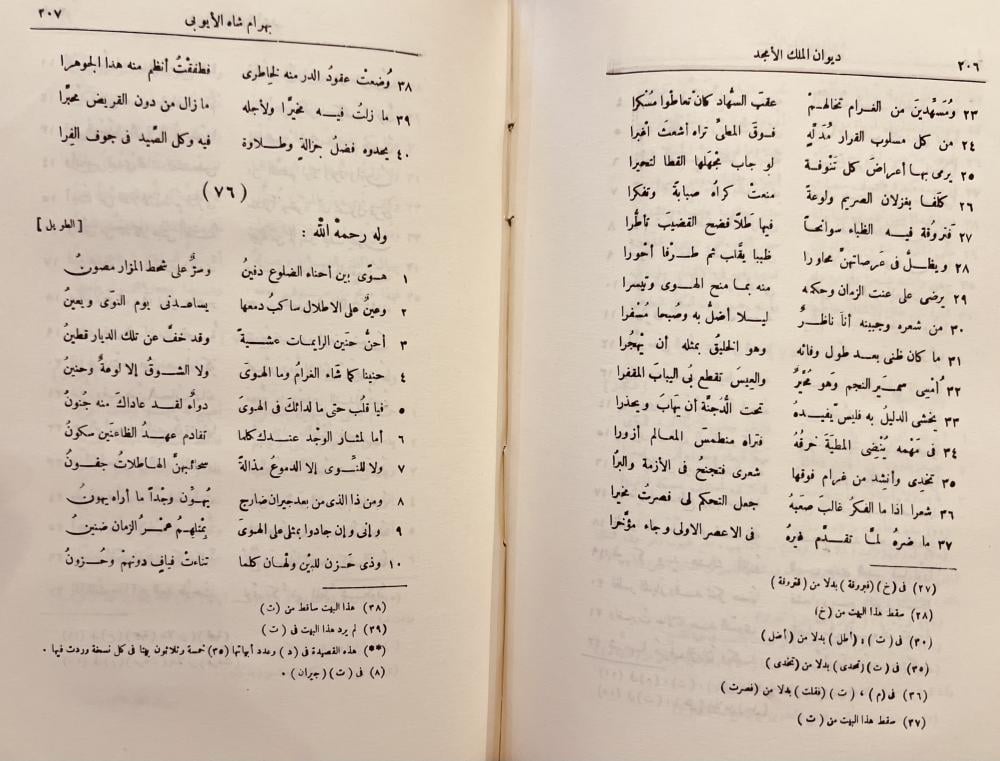 ٢٠٦ ديوان الملك الأمجد
٢٣ ومُسَهَّدينَ من الغرام تخالهمْ عقبَ السُّهاد كأنْ تعاطَوا مُسْكرا
٢٤ من كل مسلوب القرار مُدَلَّهٍ فوقَ المعلىِّ تراه أشعثَ أغبرا
٢٥ يرمى بها أعراضَ كل تَنُوفة لو جاب مجْهَلها القطا لتحيرا
٢٦ كلَفا بغزلان الصريم ولوعةً منعتْ كراهُ صبابةً وتفكرا
٢٧ فتروقة فيه الظباء سوانحاً فيها طَلاًّ فضح القضيبَ تأطُّرا
٢٨ ويظلُّ فى عَرصاتهنَّ محاورا ظبيا يقَلب ثم طرفا أحْورا
٢٩ يرضى على عنت الزمان وحكمه منه بما منح الهوى وتيسرا
٣٠ من شعره وجبينه أنا ناظرٌ ليلا أضلُّ به وصُبحا مُسْفرا
٣١ ما كان ظنى بعد طول وفائه وهو الخليقُ بمثله أن يهْجُرا
٣٢ أُمْسِى سميَر النجم وهو مُحَيَّرٌ والعِيسَ تقطع بُى اليبابَ المقفرا
٣٣ يخشى الدليلُ به فليسَ يفيدهُ تحت الدُّجنَّة أن يهَابَ ويحذرا
٣٤ فى مَهْمه يُنْضِى المطيَّةَ خرقُهُ فتراه منطمسَ المعالم أزورا
٣٥ تخدِى وأنشِد من غرام فوقها شعرى فتجنحُ فى الأزمة والبرُا
٣٦ شعرا اذا ما الفكرُ غالبَ صعبَهُ جعل التحكم لى فصرتُ مخيرا
٣٧ ما ضرهُ لمَّا تقدَّم غيرهُ فى الاعصر الاولى وجاء مؤَّخرا
(٢٧) فى (خ) (فبروقة) بدلا من (فتروقة)
(٢٨) سقط هذا البيت من (خ)
(٣٠) فى (ت) : (أظل) بدلا من (أضل)
(٣٥) فى (ت) (تحدى) بدلا من (تخدى)
(٣٦) فى (م) ، (ت) (فقلت) بدلا من (فصرت)
(٣٧) سقط هذا البيت من (ت)
بهرام شاه الأيوبى ٢٠٧
٣٨ وُضعتْ عقودُ الدر منه لخاطرى فطفقْتُ أنظم منه هذا الجوهرا
٣٩ ما زلتُ فيه مخيرًا ولأجله ما زال من دون القريض محبرًّا
٤٠ يحدوه فضلُ جزالةٍ وطلاوة فيه وكل الصَّيد فى جوف الفرا
(٧٦)
وله رحمهْ اللّه : [الطويل]
١ هوىً بين أحناء الضلوع دفينُ وسرٌّ على شحط المزار مصونُ
٢ وعينٌ على الاطلال ساكبُ دمعها يساعدنى يوم النوَى ويعينُ
٣ أحنُّ حَنين الرايمات عشيةً وقد خفَّ عن تلك الديار قطينُ
٤ حنينا كما شاء الغرامُ وما الهوىَ ولا الشوقُ إلا لوعةٌ وحنينُ
٥ فيا قلُب حتى ما لدائكَ فى الهوىَ دواءٌ لقد عاداكَ منه جُنونُ
٦ أما لمثار الوجْد عندك كلما تقادم عهدُ الظاعنَين سكونُ
٧ ولا للنَّوى إلا الدموعُ مذالةً سحائبهنَّ الهاطلاتُ جفونُ
٨ ومن ذا الذى من بعد جيران ضارج يُهوِّن وجْداً ما أراه يهونُ
٩ وإنى وإن جادوا بمثلى على الهوىَ بمثلهمُ عمْرُ الزمان ضنينُ
١٠ وذى حَزن للبيْن ولْهان كلما تناءتْ فيافٍ دونهمْ وحُزونُ
(٣٨) هذا البيت ساقط من (ت)
(٣٩) لم يرد هذا البيت فى (ت)
(**) هذه القصيدة فى (د) وعدد أبياتها (٣٥) خمسة وثلاثون بيتا فى كل نسخة وردت فيها .
(٨) فى (ت) (جيران) .